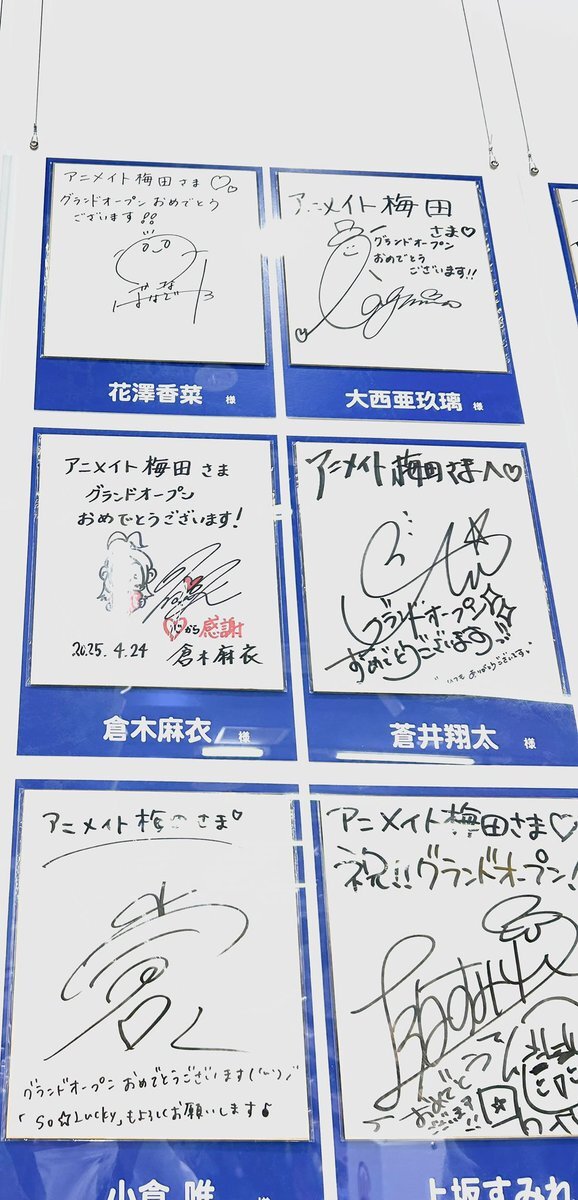 アニメイト梅田さま♡♡
グランドオープンおめでとう
ございます!!
花澤香菜 様
アニメイト梅田
さま♡
グランドオープン
おめでとう
ございます!!
大西亜玖璃 様
アニメイト梅田さま
グランドオープン
おめでとうございます!
心から感謝
2025.4.24 倉木麻衣
倉木麻衣 様
アニメイト梅田さまへ♡
グランドオープン
おめでとうございます
いつもありがとうございます
蒼井翔太 様
アニメイト梅田さま♡
グランドオープンおめでとうございます
「So☆Lucky」もよろしくお願いします♪
小倉 唯 様
アニメイト梅田さま♡
祝!!グランドオープン!
おめでとう
ございます!!
上坂すみれ